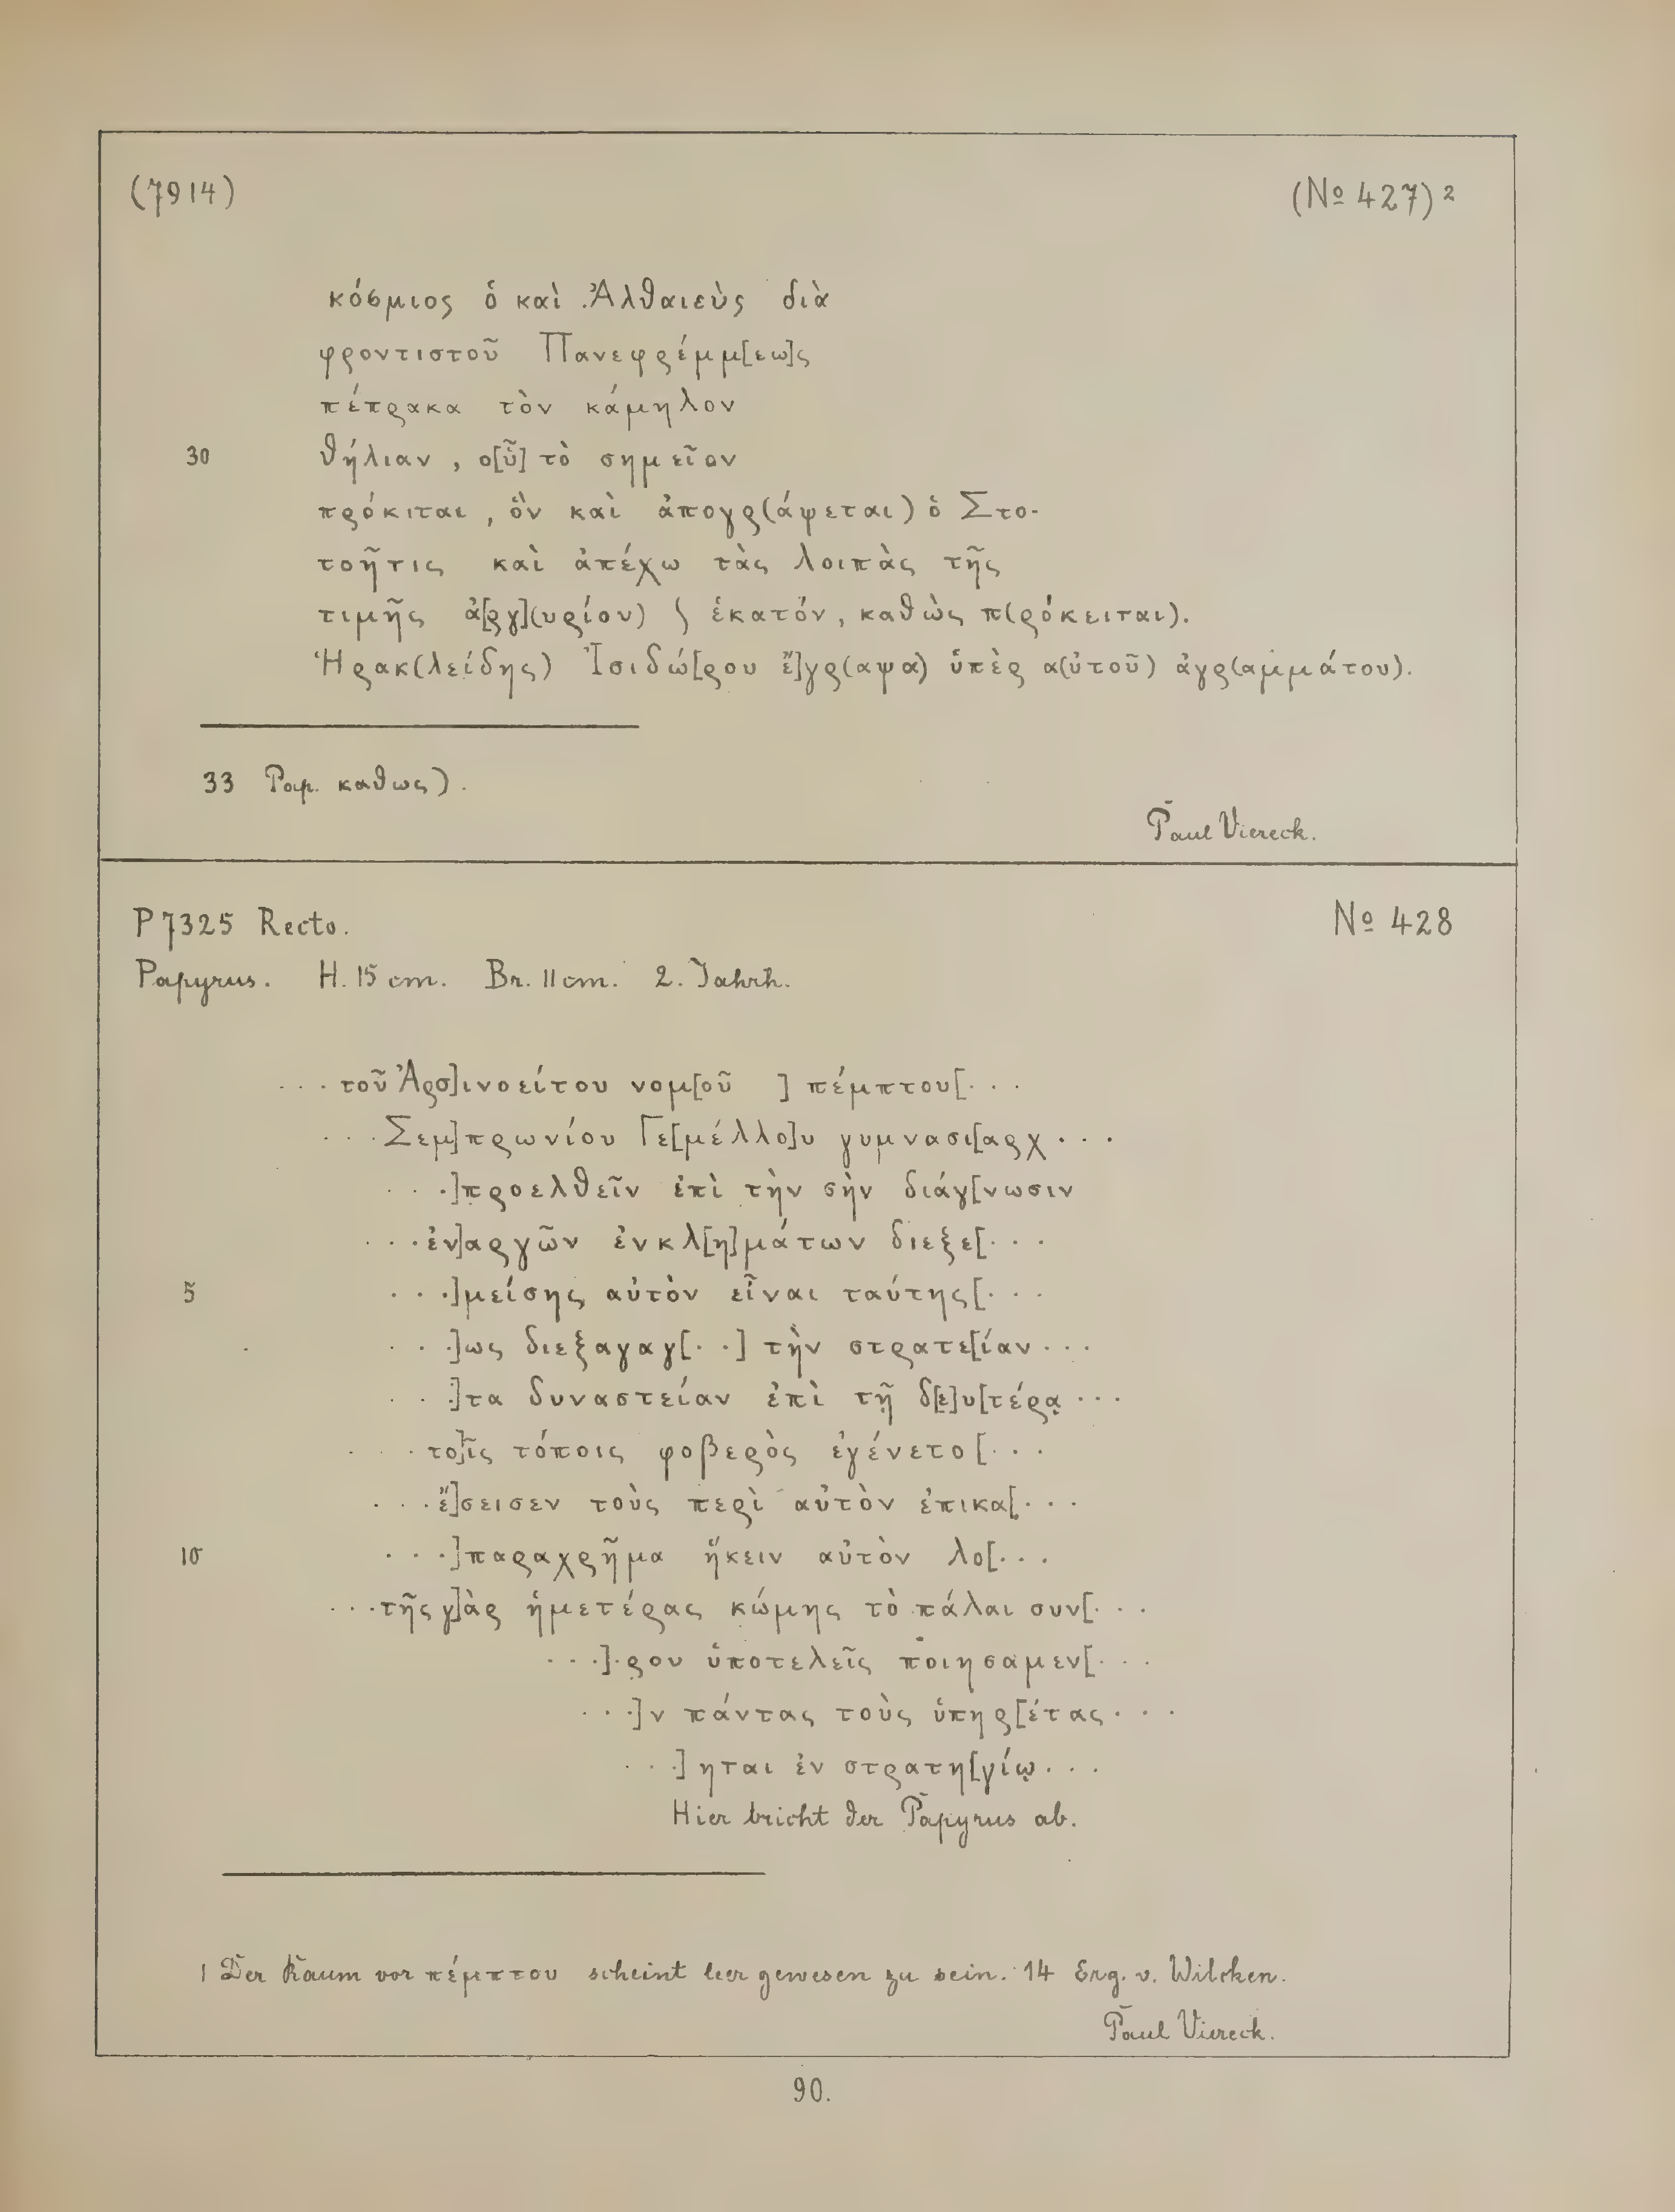 (7914) (No 427)²
κόσμιος ὁ καὶ Ἀλθαιεὺς διὰ
φροντιστοῦ Πανεφρέμμ[εω]ς
πέπρακα τὸν κάμηλον
30 θήλιαν, ο[ὗ] τὸ σημεῖον
πρόκιται, ὃν καὶ ἀπογρ(άψεται) ὁ Στο-
τοῆτις καὶ ἀπέχω τὰς λοιπὰς τῆς
τιμῆς ἀ[ργ](υρίου) ⟆ ἑκατόν, καθὼς π(ρόκειται).
Ἡρακ(λείδης) Ἰσιδώ[ρου ἔ]γρ(αψα) ὑπὲρ α(ὐτοῦ) ἀγρ(αμμάτου).
33 Pap. καθως).
Paul Viereck.
P 7325 Recto. No 428
Papyrus. H. 15 cm. Br. 11 cm. 2. Jahrh.
... τοῦ Ἀρσ]ινοείτου νομ[οῦ ] πέμπτου[...
... Σεμ]πρωνίου Γε[μέλλο]υ γυμνασι[αρχ...
...]προελθεῖν ἐπὶ τὴν σὴν διάγ[νωσιν
...ἐν]αργῶν ἐνκλ[η]μάτων διεξε[...
5 ...]μείσης αὐτὸν εἶναι ταύτης[...
...]ως διεξαγαγ[..] τὴν στρατε[ίαν...
...]τα δυναστείαν ἐπὶ τῇ δ[ε]υ[τέρᾳ...
...το]ῖς τόποις φοβερὸς ἐγένετο[...
...ἔ]σεισεν τοὺς περὶ αὐτὸν ἐπικα[...
10 ...]παραχρῆμα ἥκειν αὐτὸν λο[...
...τῆς γ]ὰρ ἡμετέρας κώμης τὸ πάλαι συν[...
...].ρου ὑποτελεῖς ποιησαμεν[...
...]ν πάντας τοὺς ὑπηρ[έτας...
...]ηται ἐν στρατη[γίῳ...
Hier bricht der Papyrus ab.
1 Der Raum vor πέμπτου scheint leer gewesen zu sein. 14 Erg. v. Wilcken.
Paul Viereck.
90.